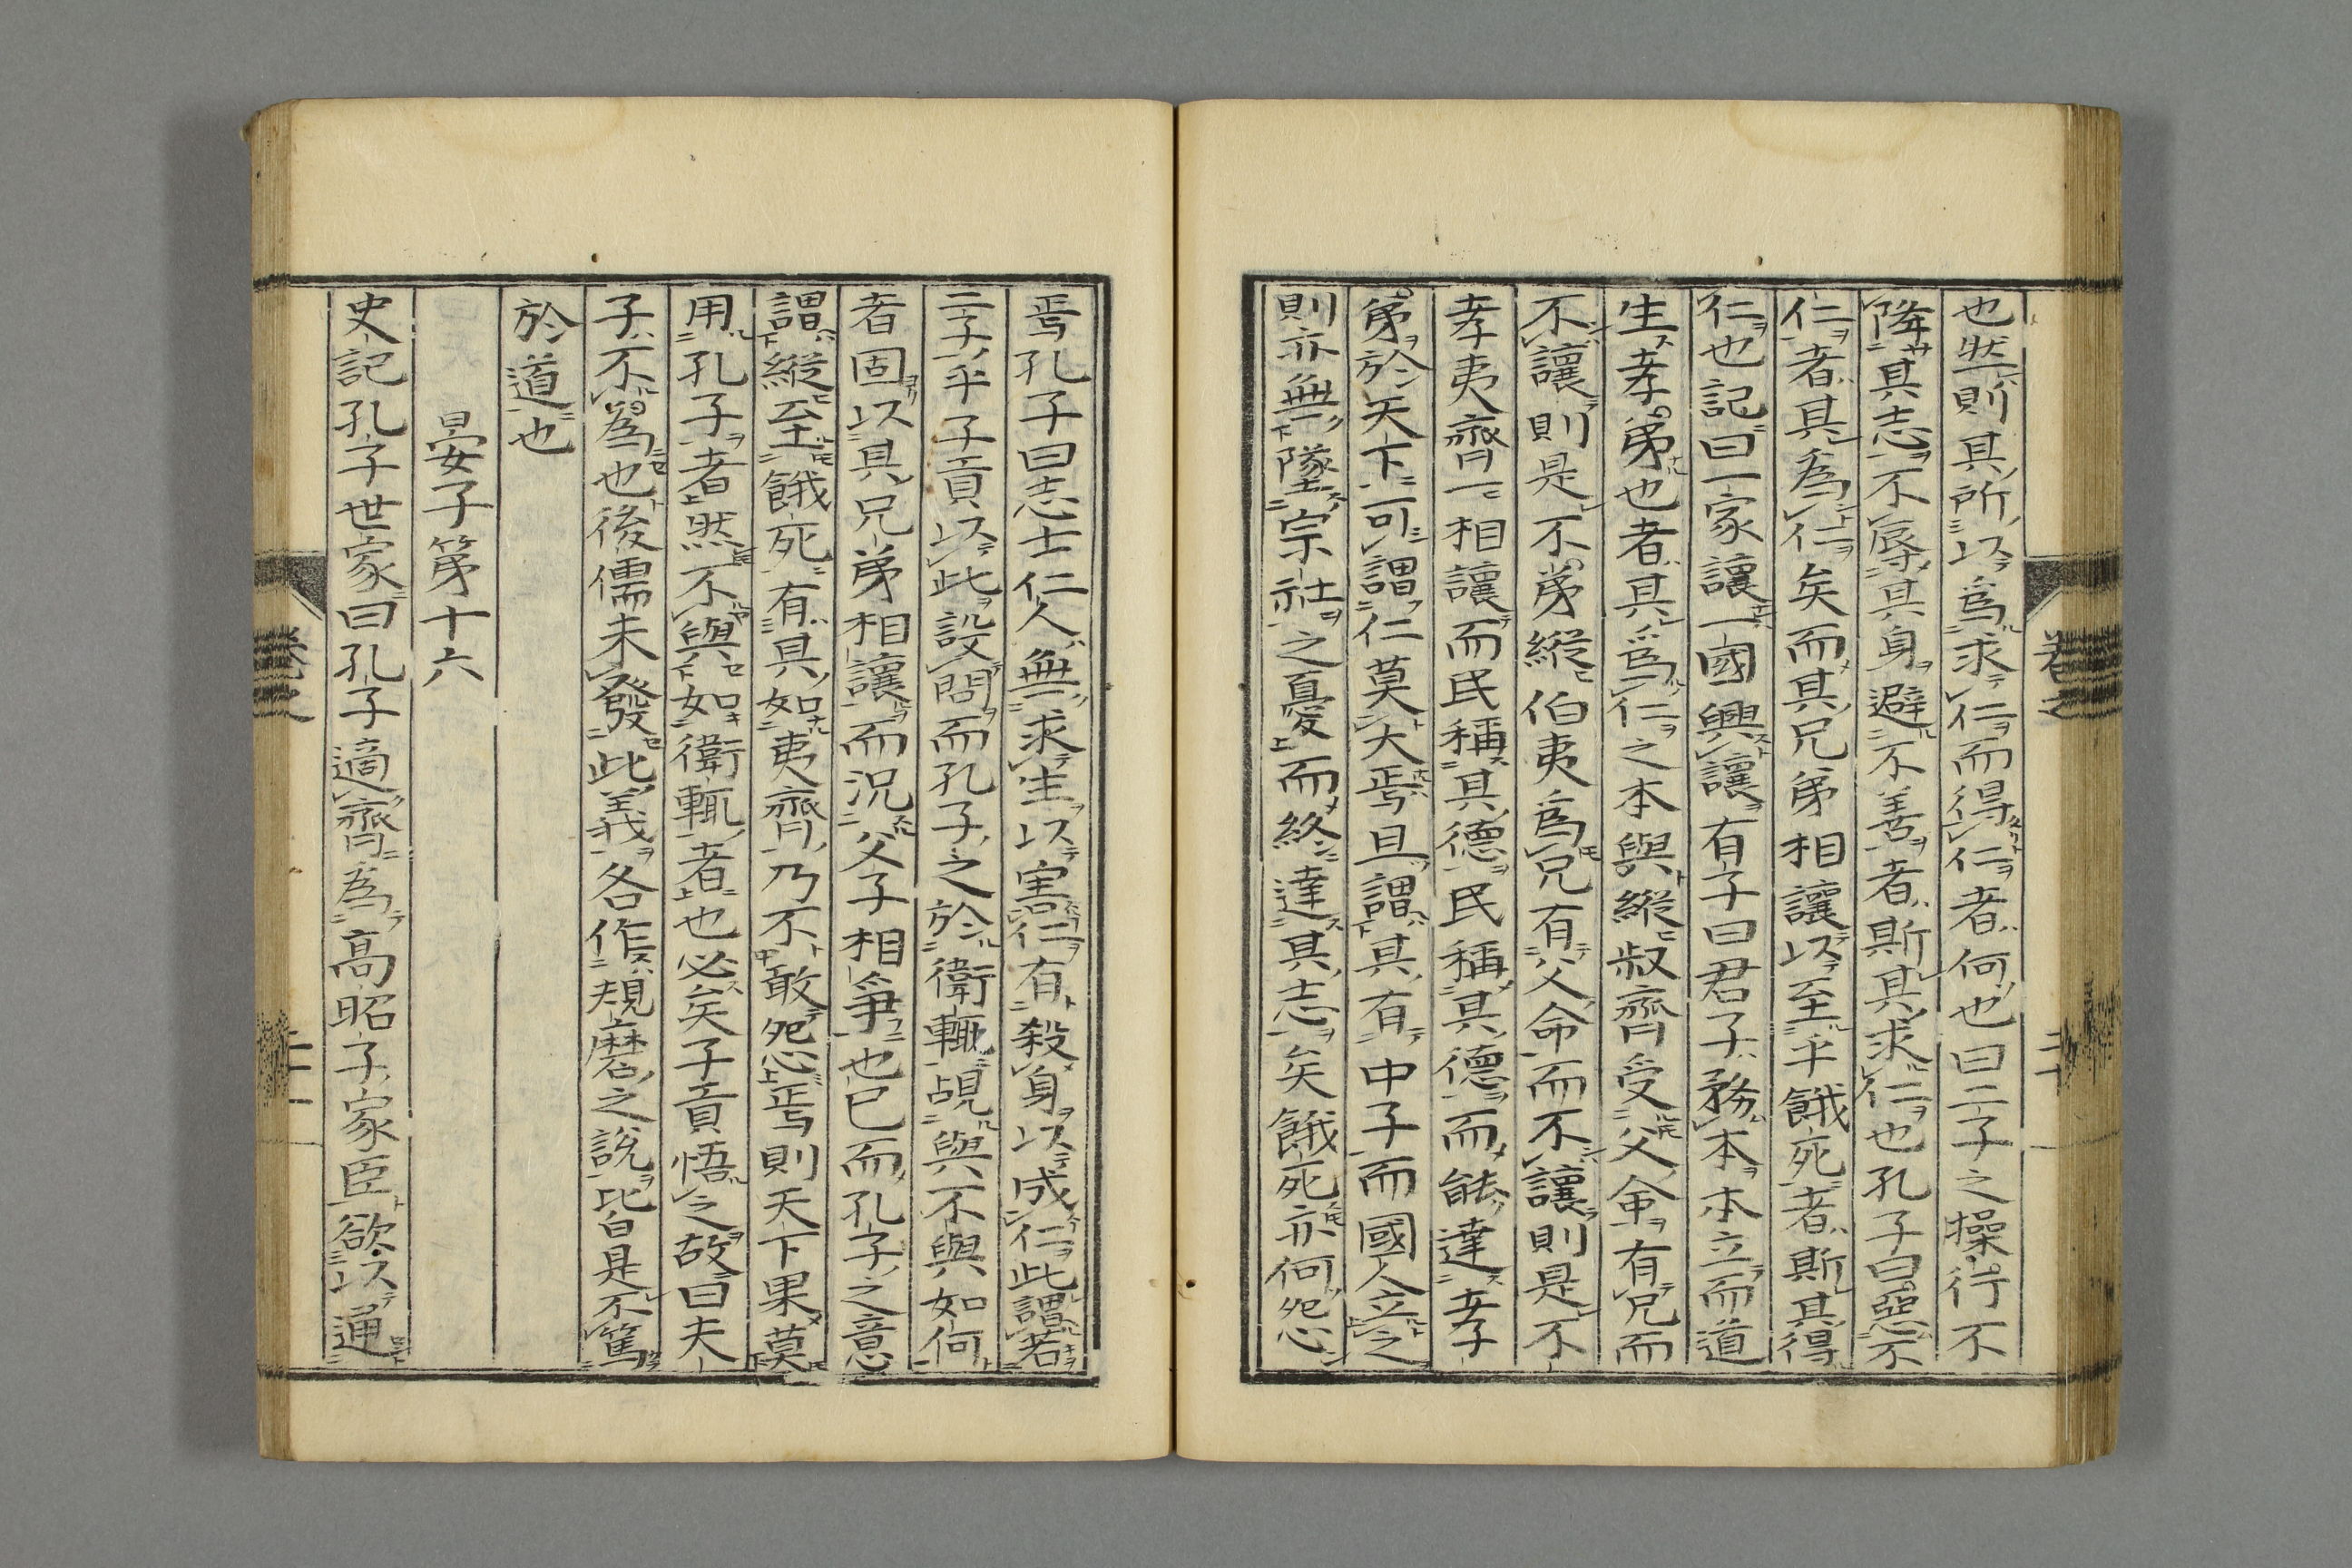 也然則其所以爲求仁而得仁者何也曰二子之操行不
降其志不辱其身避不善者斯其求仁也孔子曰惡不
仁者其爲仁矣而其兄弟相讓以至乎餓死者斯其得
仁也記曰一家讓一國興讓有子曰君子務本本立而道
生孝弟也者其爲仁之本與縱叔齊受父命有兄而
不讓則是不弟縱伯夷爲兄有父命而不讓則是不
孝夷齊一相讓而民稱其德民稱其德而能達孝
弟於天下可謂仁莫大焉且謂其有中子而國人立之
則亦無墜宗社之憂而終達其志矣餓死亦何怨
焉孔子曰志士仁人無求生以害仁有殺身以成仁此謂若
二子乎子貢以此設問而孔子之於衛輒覘與不與如何
者固以其兄弟相讓而況父子相爭也已而孔子之意
謂縱至餓死有其如夷齊乃不敢怨焉則天下果莫
用孔子者然不與如衛輒者也必矣子貢悟之故曰夫
子不爲也後儒未發此義各作規磨之說此皆是不篤
於道也
晏子第十六
史記孔子世家曰孔子適齊爲高昭子家臣欲以通
卷之
二十
卷之
二十一